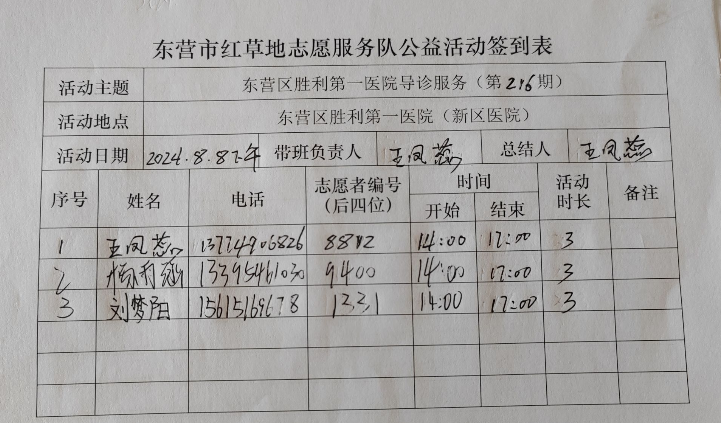 东营市红草地志愿服务队公益活动签到表
活动主题 东营区胜利第一医院导诊服务（第216期）
活动地点 东营区胜利第一医院（新区医院）
活动日期 2024.8.8下午 带班负责人 王凤蕊 总结人 王凤蕊
序号 姓名 电话 志愿者编号（后四位） 时间 开始 结束 活动时长 备注
1 王凤蕊 13774906826 8812 14:00 17:00 3
2 13395461030 9400 14:00 17:00 3
3 刘梦阳 15615169678 1331 14:00 17:00 3